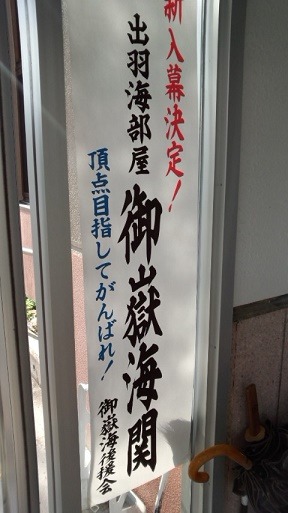 新入幕決定!
出羽海部屋
御嶽海関
頂点目指してがんばれ!
御嶽海後援会